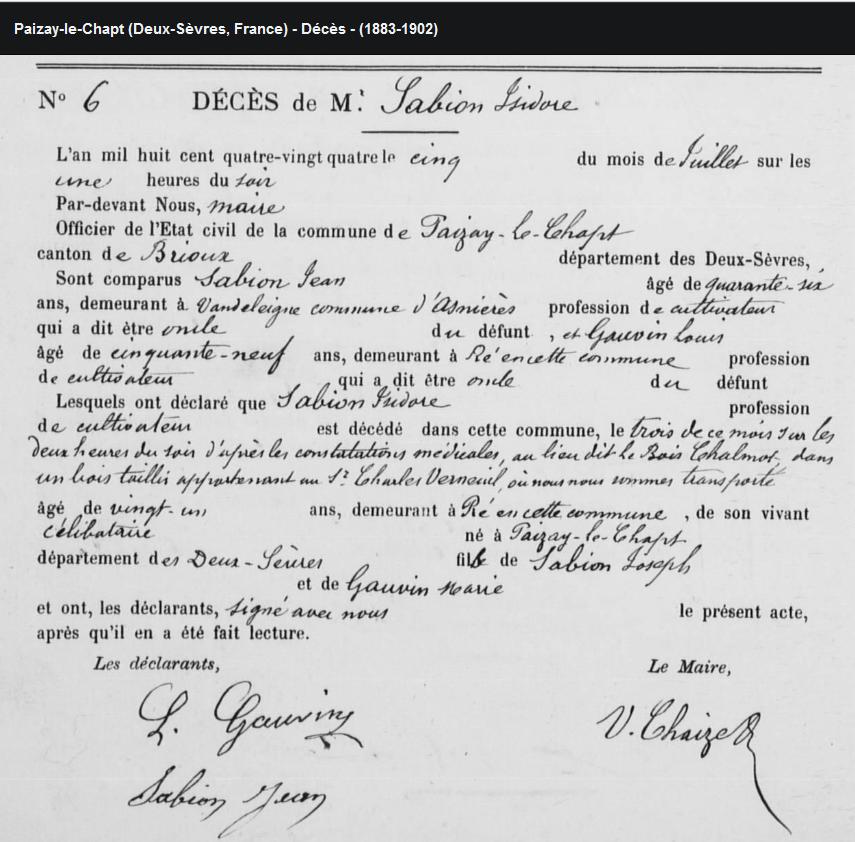 Paizay-le-Chapt (Deux-Sèvres, France) - Décès - (1883-1902)
N° 6 DÉCÈS de M.r Sabion Isidore
L'an mil huit cent quatre-vingt quatre le cinq du mois de Juillet sur les
une heures du soir
Par-devant Nous, maire
Officier de l'Etat civil de la commune de Paizay-le-Chapt
canton de Brioux département des Deux-Sèvres,
Sont comparus Sabion Jean âgé de quarante-six
ans, demeurant à Vandeleigne commune d'Asnières profession de cultivateur
qui a dit être oncle du défunt , et Gauvin Louis
âgé de cinquante-neuf ans, demeurant à Ré en cette commune profession
de cultivateur qui a dit être oncle du défunt
Lesquels ont déclaré que Sabion Isidore profession
de cultivateur est décédé dans cette commune, le trois de ce mois sur les
deux heures du soir d'après les constatations médicales, au lieu dit le Bois Chalmot, dans
un bois taillis appartenant au Sr Charles Verneuil, où nous nous sommes transporté
âgé de vingt-un ans, demeurant à Ré en cette commune , de son vivant
célibataire né à Paizay-le-Chapt
département des Deux-Sèvres fils de Sabion Joseph
et de Gauvin Marie
et ont, les déclarants, signé avec nous le présent acte,
après qu'il en a été fait lecture.
Les déclarants, Le Maire,
L. Gauvin V. Chaize
Sabion Jean